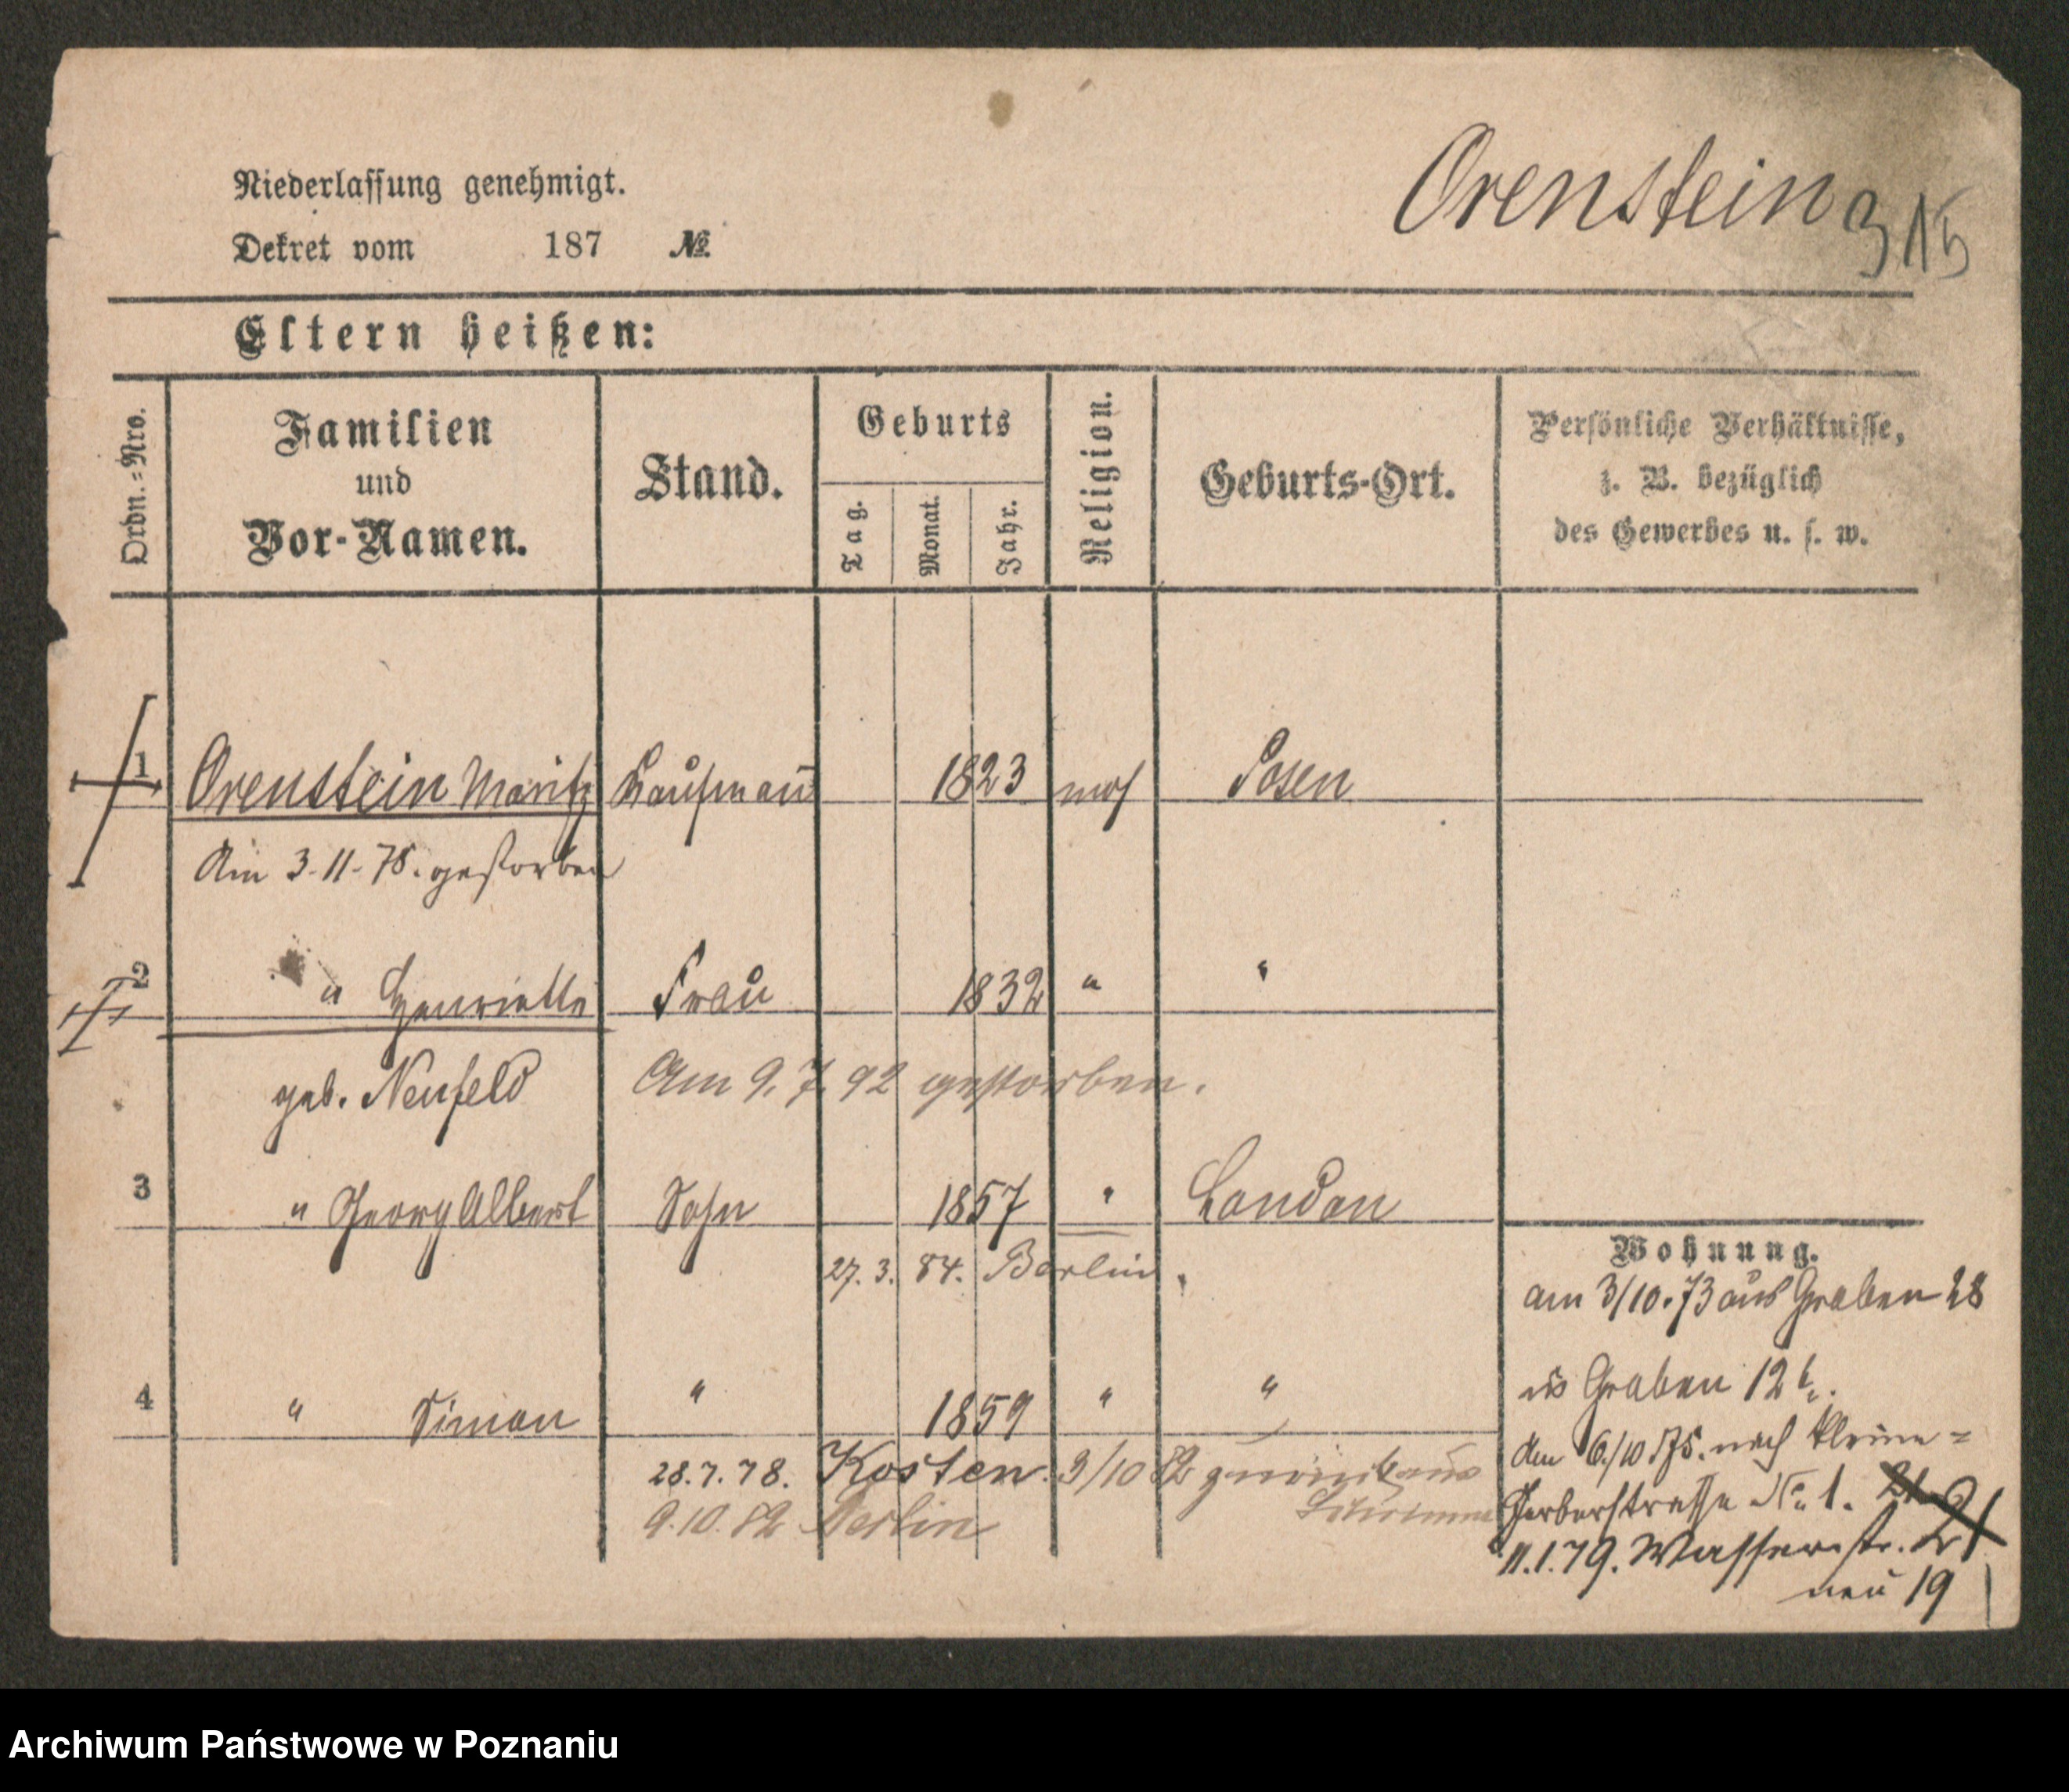 Niederlassung genehmigt.
Orenstein 315
Dekret vom 187 №
Eltern heißen:
Ordn.-Nro.
Familien
und
Vor-Namen.
Stand.
Geburts
Tag.
Monat.
Jahr.
Religion.
Geburts-Ort.
Persönliche Verhältnisse,
z. B. bezüglich
des Gewerbes u. s. w.
1 Orenstein Moritz Kaufmann 1823 mos Posen
Am 3.11.78. gestorben
2 " Henriette Frau 1832 " "
geb. Neufeld Am 9.7.92 gestorben.
3 " Georg Albert Sohn 1857 " London
27.3.84. Berlin.
4 " Simon " 1859 " "
28.7.78. Kosten. 3/10 82 zurück aus
9.10.82 Berlin
Wohnung.
am 3/10.73 aus Graben 28
Graben 12b.
Am 6/10 75. nach kleine=
Gerberstrasse No 1. 21
11.1.79. Wasserstr. 21
neu 19
Archiwum Państwowe w Poznaniu